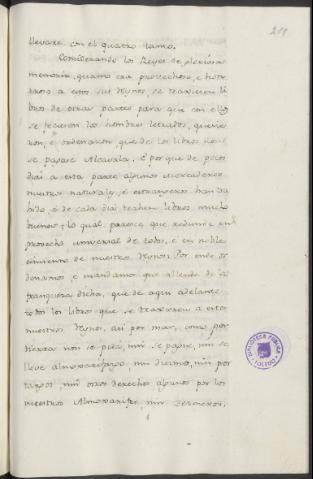 211
llevare con el quatro tanto.
Considerando los Reyes de gloriosa
memoria, quanto era provechoso, è hon
rroso a estos sus Reynos, se traxiesen li
bros de otras partes para que con ellos
se ficiesen los hombres letrados, quisie
ron, è ordenaron, que de los libros non
se pagase Alcavala. È porque de pocos
dias a esta parte algunos Mercaderes
nuestros naturales, è estrangeros han tra
hido, è de cada dia trahen libros mucho
buenos; lo qual, paresce que redunda en
provecho universal de todos, è en noble
cimiento de nuestros Reynos: Por ende or
denamos, è mandamos que allende de la
franqueza dicha, que de aqui adelante
todos los libros que se traxieren a estos
nuestros Reynos, asi por mar, como por
tierra non se pida, nin se pague, nin se
lleve almoxarifazgo, nin diezmo, nin por
tazgo, nin otros derechos algunos por los
nuestros Almoxarifes, nin Dezmeros,
BIBLIOTECA PUBLICA
TOLEDO